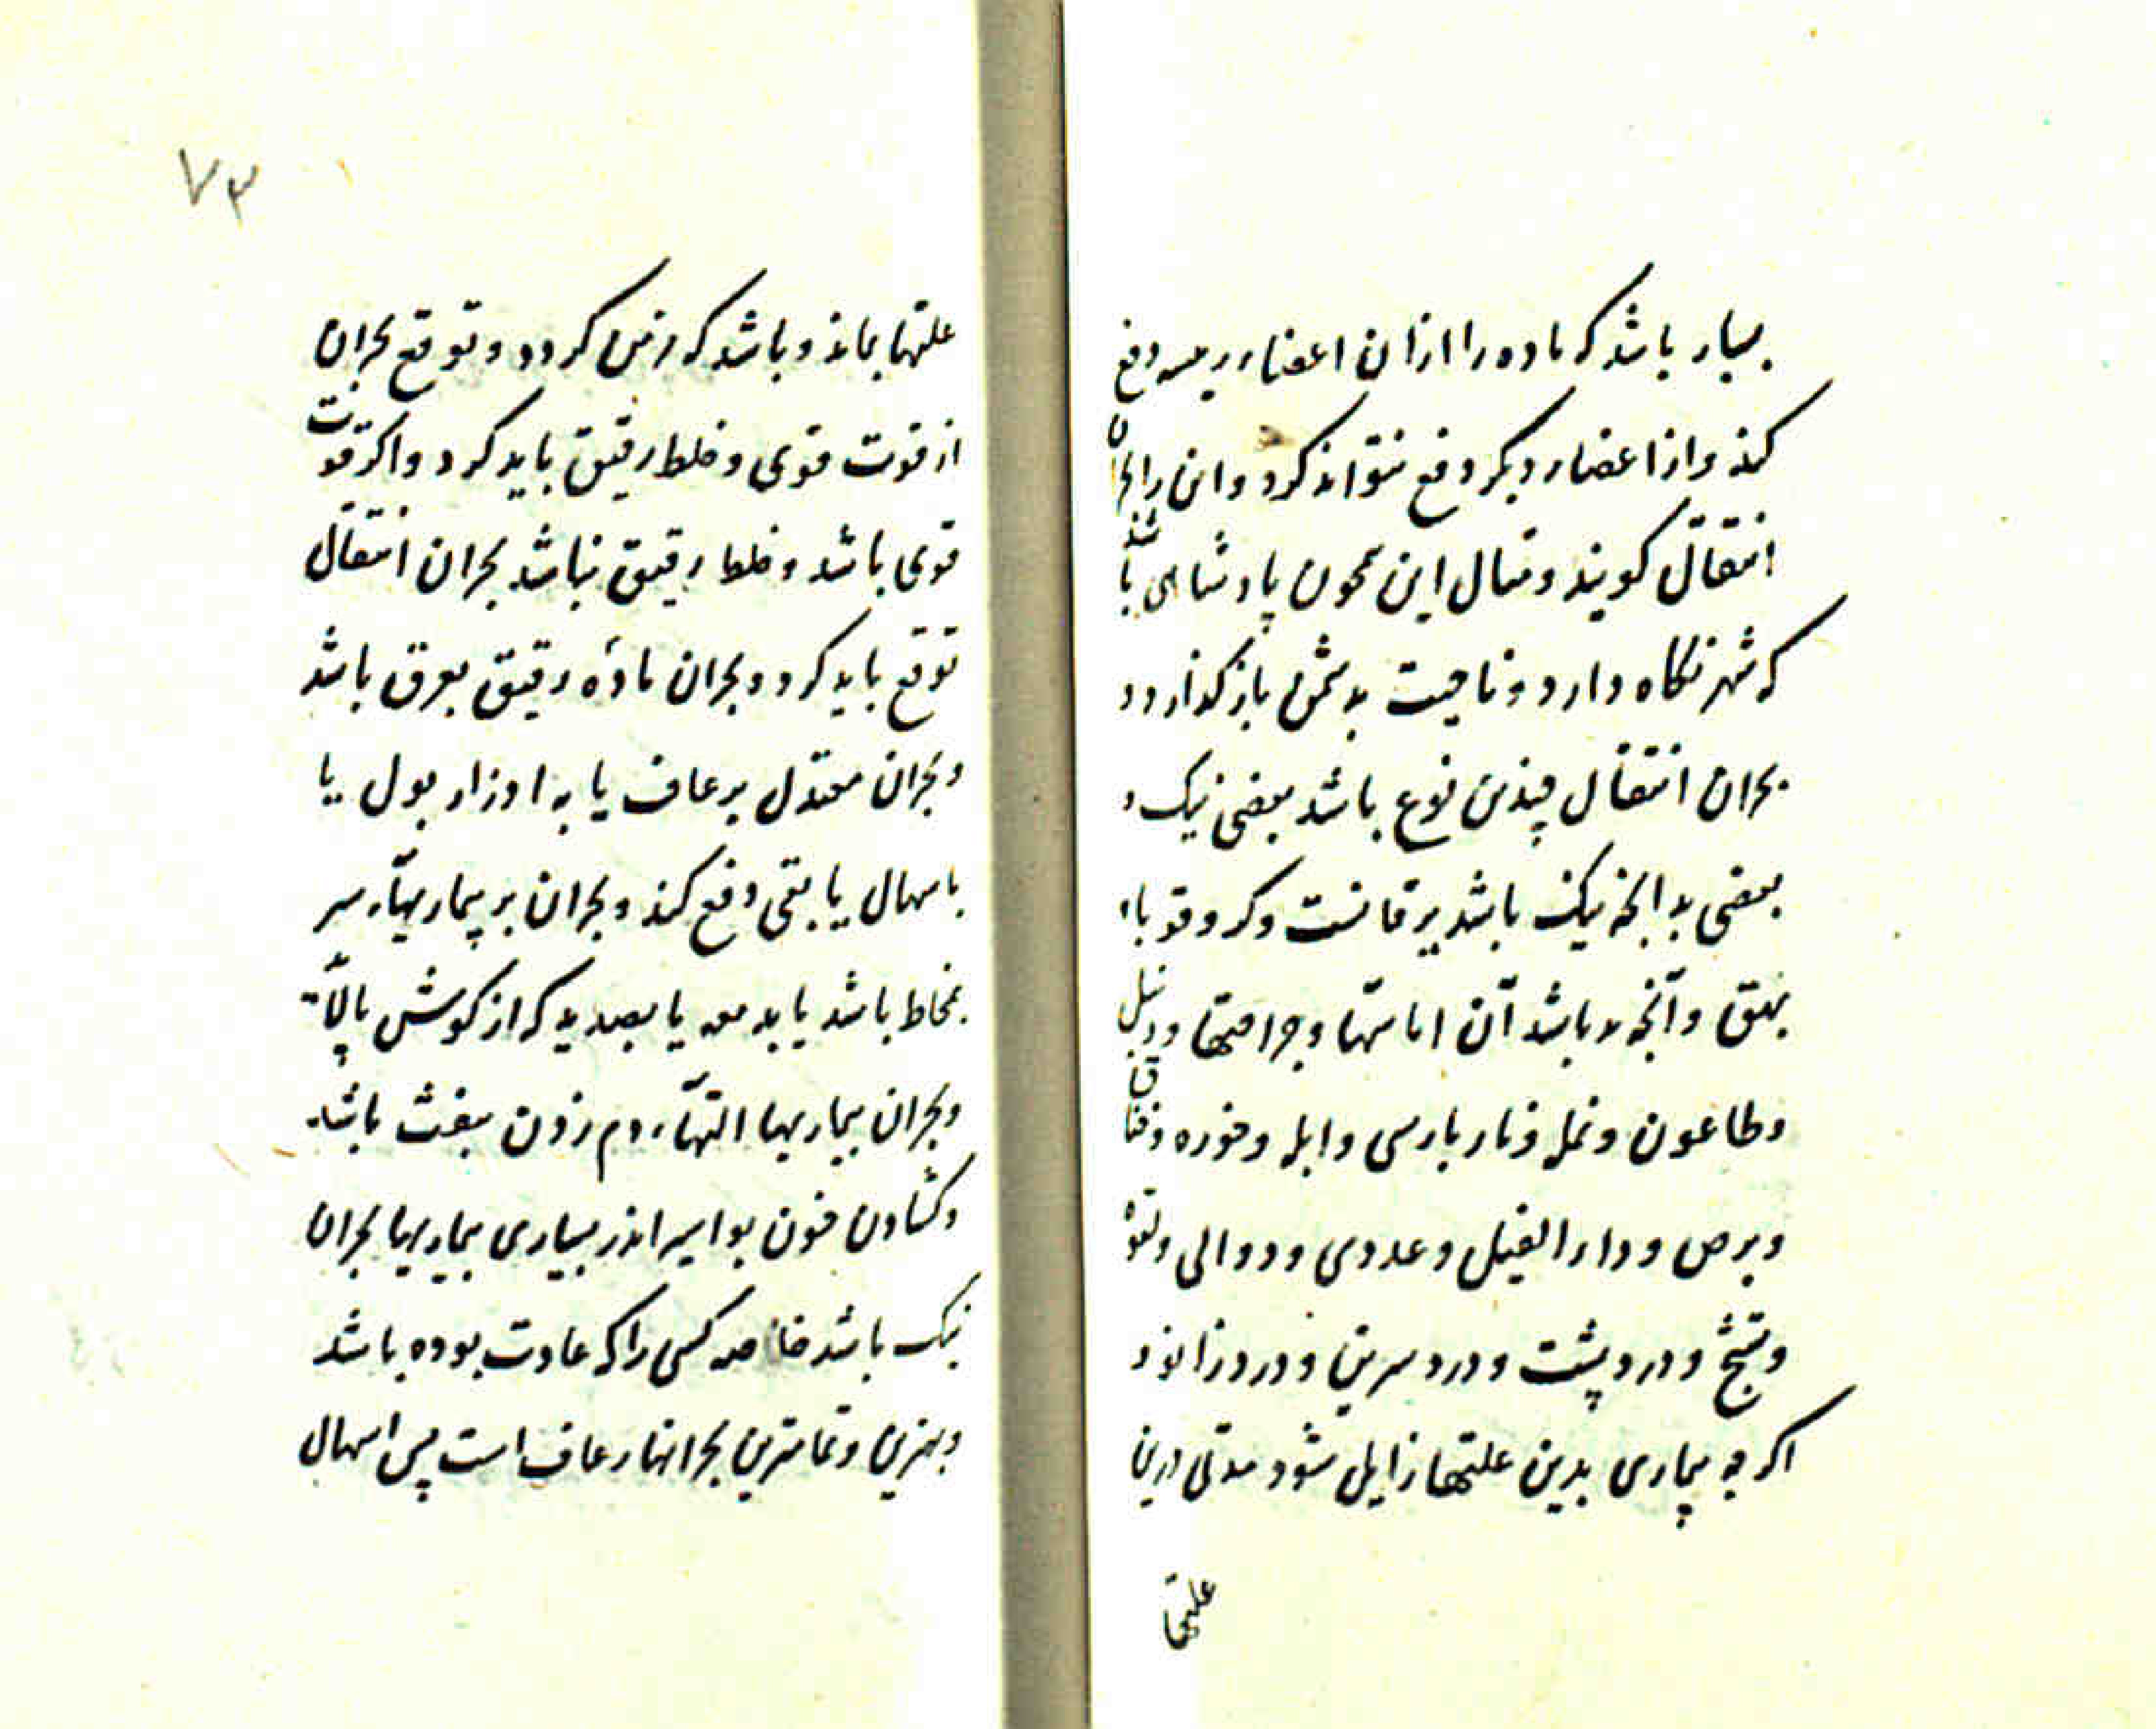 بسیار باشد که ماده را ازان اعضاء رییسه دفع
کند و از اعضاء دیکر دفع نتواند کرد و این را بحران
انتقال کویند و مثال این همچون پادشاهی باشد
که شهر نکاه دارد و ناحیت بدشمن باز کذارد و
بحران انتقال چندین نوع باشد بعضی نیک و
بعضی بد انچه نیک باشد یرقانست و کر و قوبا و
بهق و آنچه بد باشد آن اماسها و جراحتها و دبیل
و طاعون و نمله و نار پارسی و ابله و خوره و خناق
و برص و داء الفیل و غددی و دوالی و لقوه
و تشنج و درد پشت و درد سرین و درد زانو و
اکرچه بیماری بدین علتها زایل شود مدتی درین
علتها
۷۳
علتها بماند و باشد که مزمن کردد و توقع بحران
از قوت قوی و خلط رقیق باید کرد و اکر قوت
قوی باشد و خلط رقیق نباشد بحران انتقال
توقع باید کرد و بحران مادهٔ رقیق بعرق باشد
و بحران معتدل برعاف یا به ادرار بول یا
باسهال یا بقی دفع کند و بحران بر بیماریهاء سر
بمخاط باشد یا بدمعه یا بصدید که از کوش پالاید
و بحران بیماریها التهاء دم زدن بنفث باشد
و کشادن خون بواسیر اندر بسیاری بیماریها بحران
نیک باشد خاصه کسی را که عادت بوده باشد
و بهترین و تمامترین بحرانها رعاف است پس اسهال